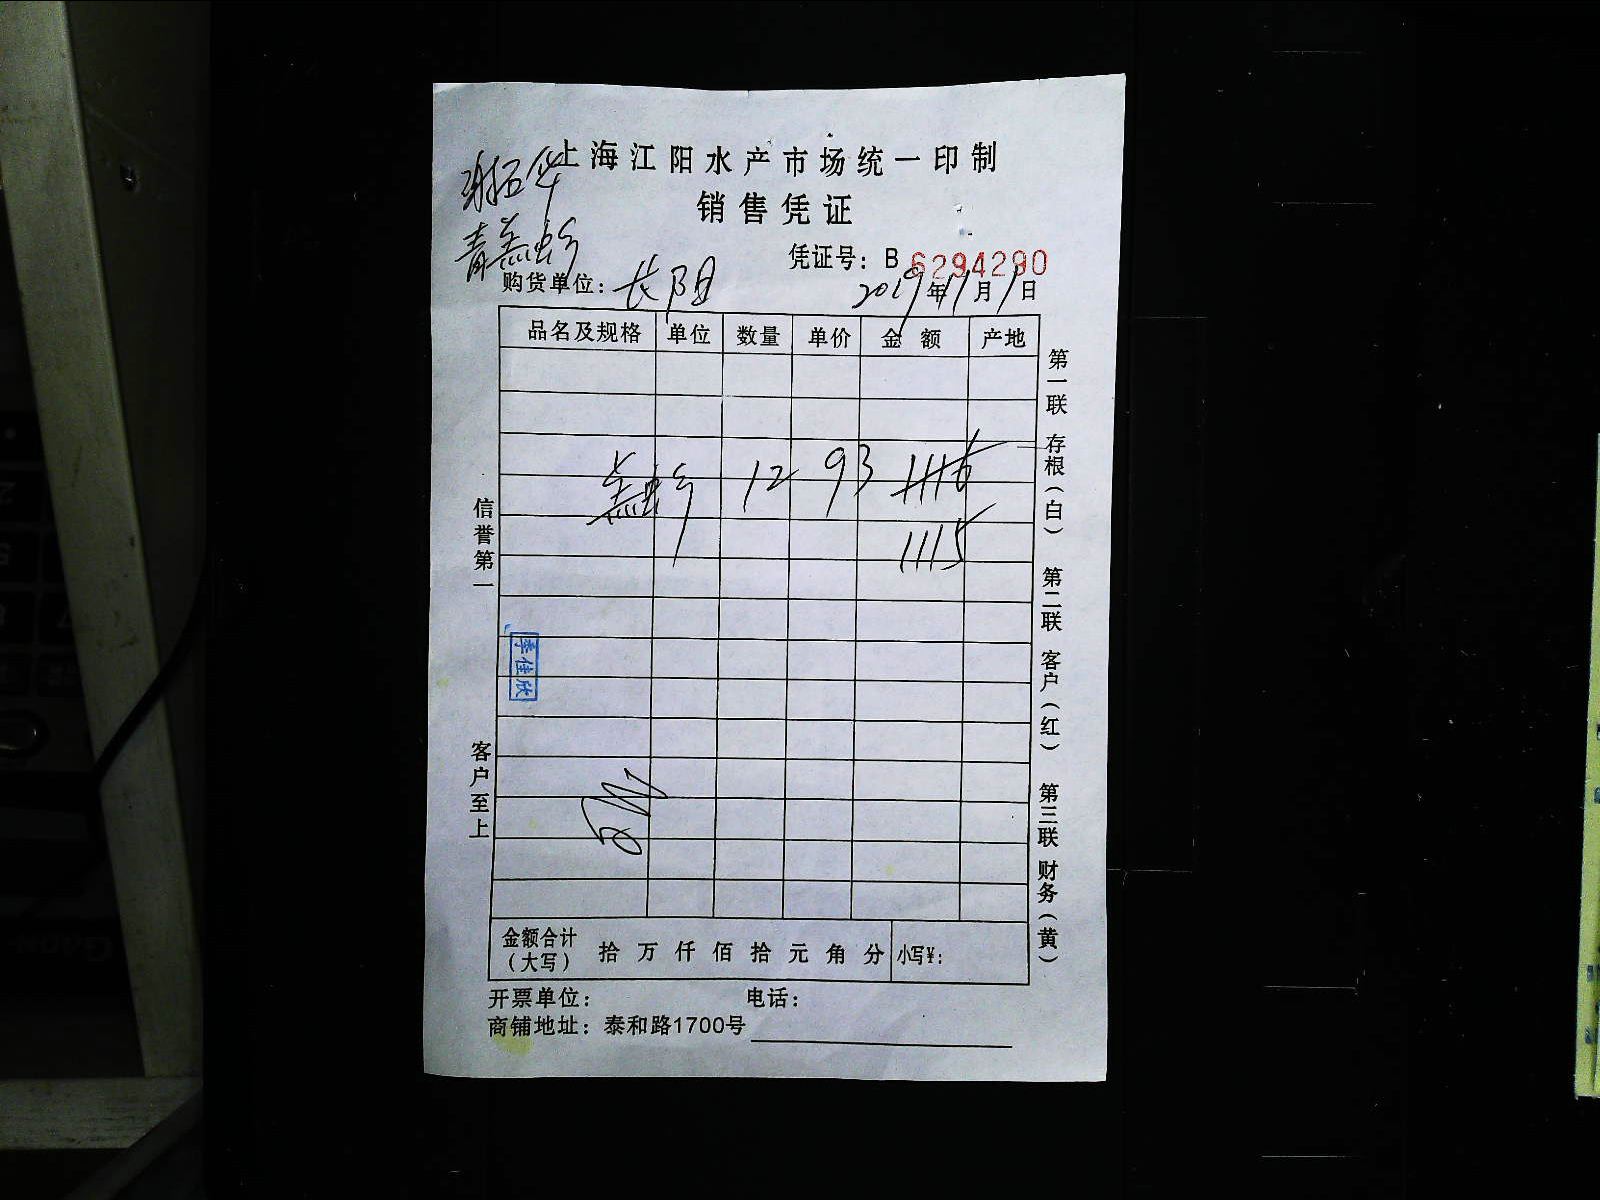 上海江阳水产市场统一印制
销售凭证
凭证号：B 6294290
购货单位：长阳
2019年11月1日
品名及规格 单位 数量 单价 金额 产地
12 93 1116
1115
信誉第一
客户至上
季佳欣
金额合计（大写） 拾 万 仟 佰 拾 元 角 分 小写¥：
开票单位： 电话：
商铺地址：泰和路1700号
第一联 存根（白） 第二联 客户（红） 第三联 财务（黄）